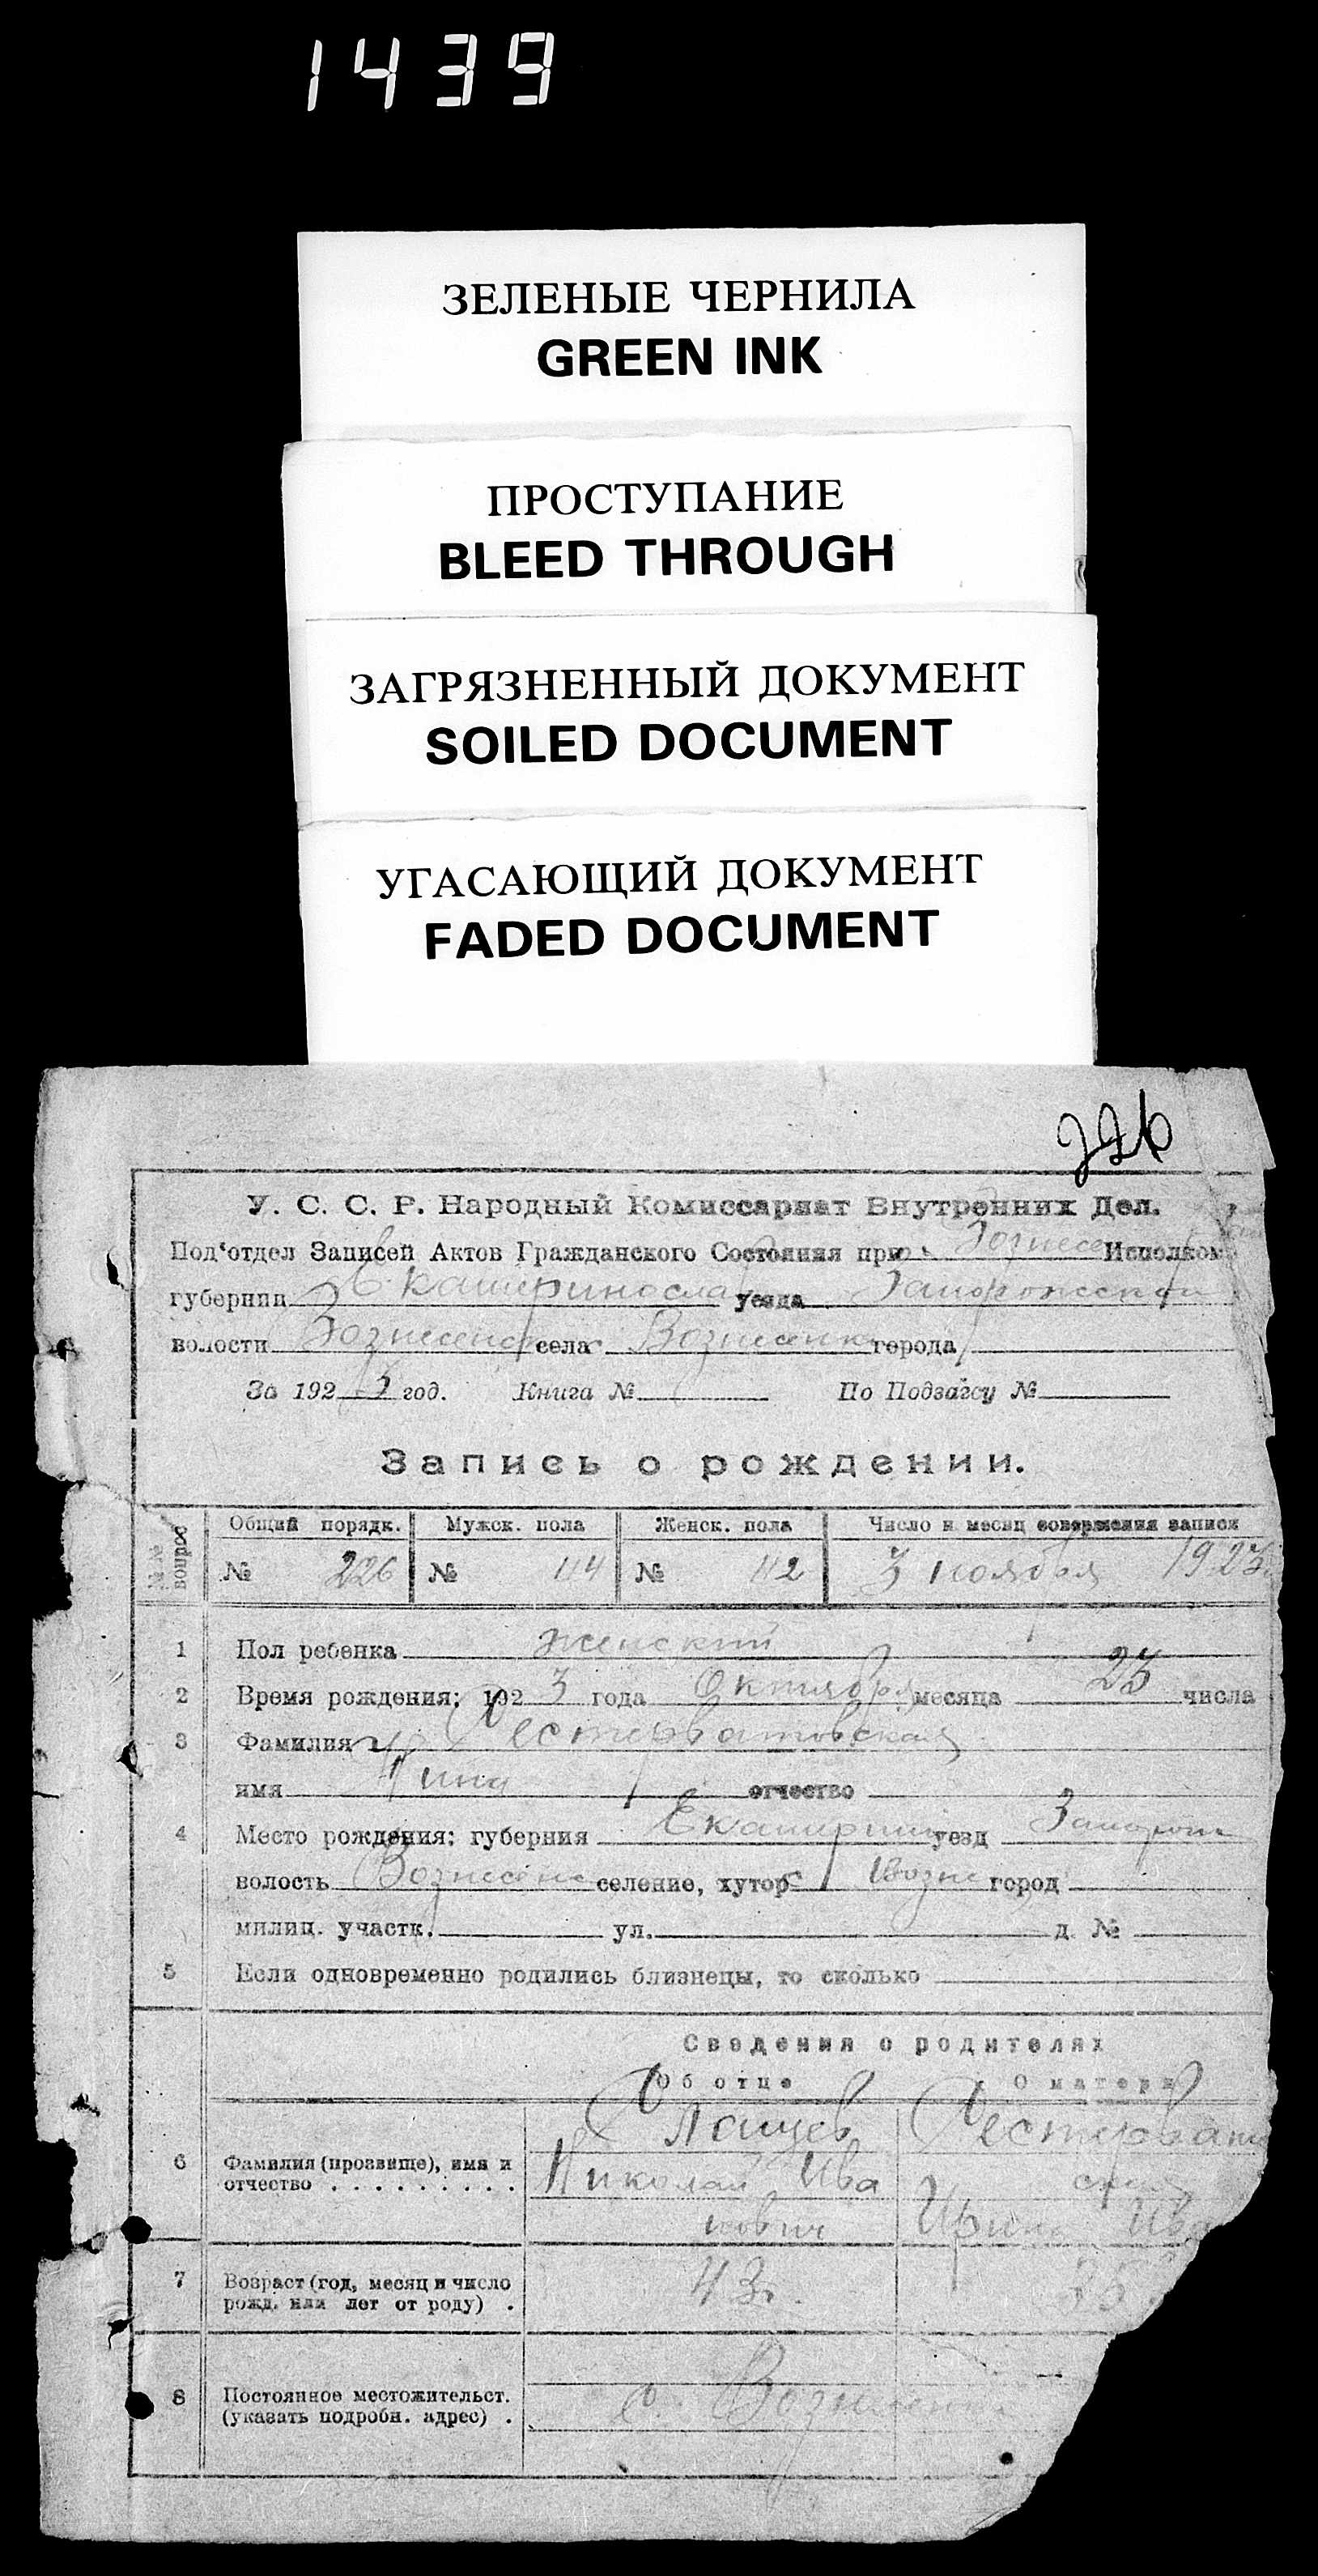 1439
ЗЕЛЕНЫЕ ЧЕРНИЛА
GREEN INK
ПРОСТУПАНИЕ
BLEED THROUGH
ЗАГРЯЗНЕННЫЙ ДОКУМЕНТ
SOILED DOCUMENT
УГАСАЮЩИЙ ДОКУМЕНТ
FADED DOCUMENT
226
У. С. С. Р. Народный Комиссариат Внутренних Дел.
Под'отдел Записей Актов Гражданского Состояния при Исполком
губернии Екатеринослав уезда Запорожский
волости Вознесенск села Вознесенка города
За 1923 год. Книга № По Подзагсу №
Запись о рождении.
№№ вопрос Общий порядк. Мужск. пола Женск. пола Число и месяц совершения записи
№ 226 № 114 № 112 3 ноября 1923
1 Пол ребенка женский
2 Время рождения: 1923 года Октября месяца 23 числа
3 Фамилия
имя Нина отчество
4 Место рождения: губерния Екатерин уезд Запорож
волость Вознесенс селение, хутор Возне город
милиц. участк. ул. д. №
5 Если одновременно родились близнецы, то сколько
Сведения о родителях
Об отце О матери
6 Фамилия (прозвище), имя и
отчество . . . . . . . . . Николай Ива
нович Ирина Ива
7 Возраст (год, месяц и число
рожд. или лет от роду) . 43 35
8 Постоянное местожительст.
(указать подробн. адрес) . с.